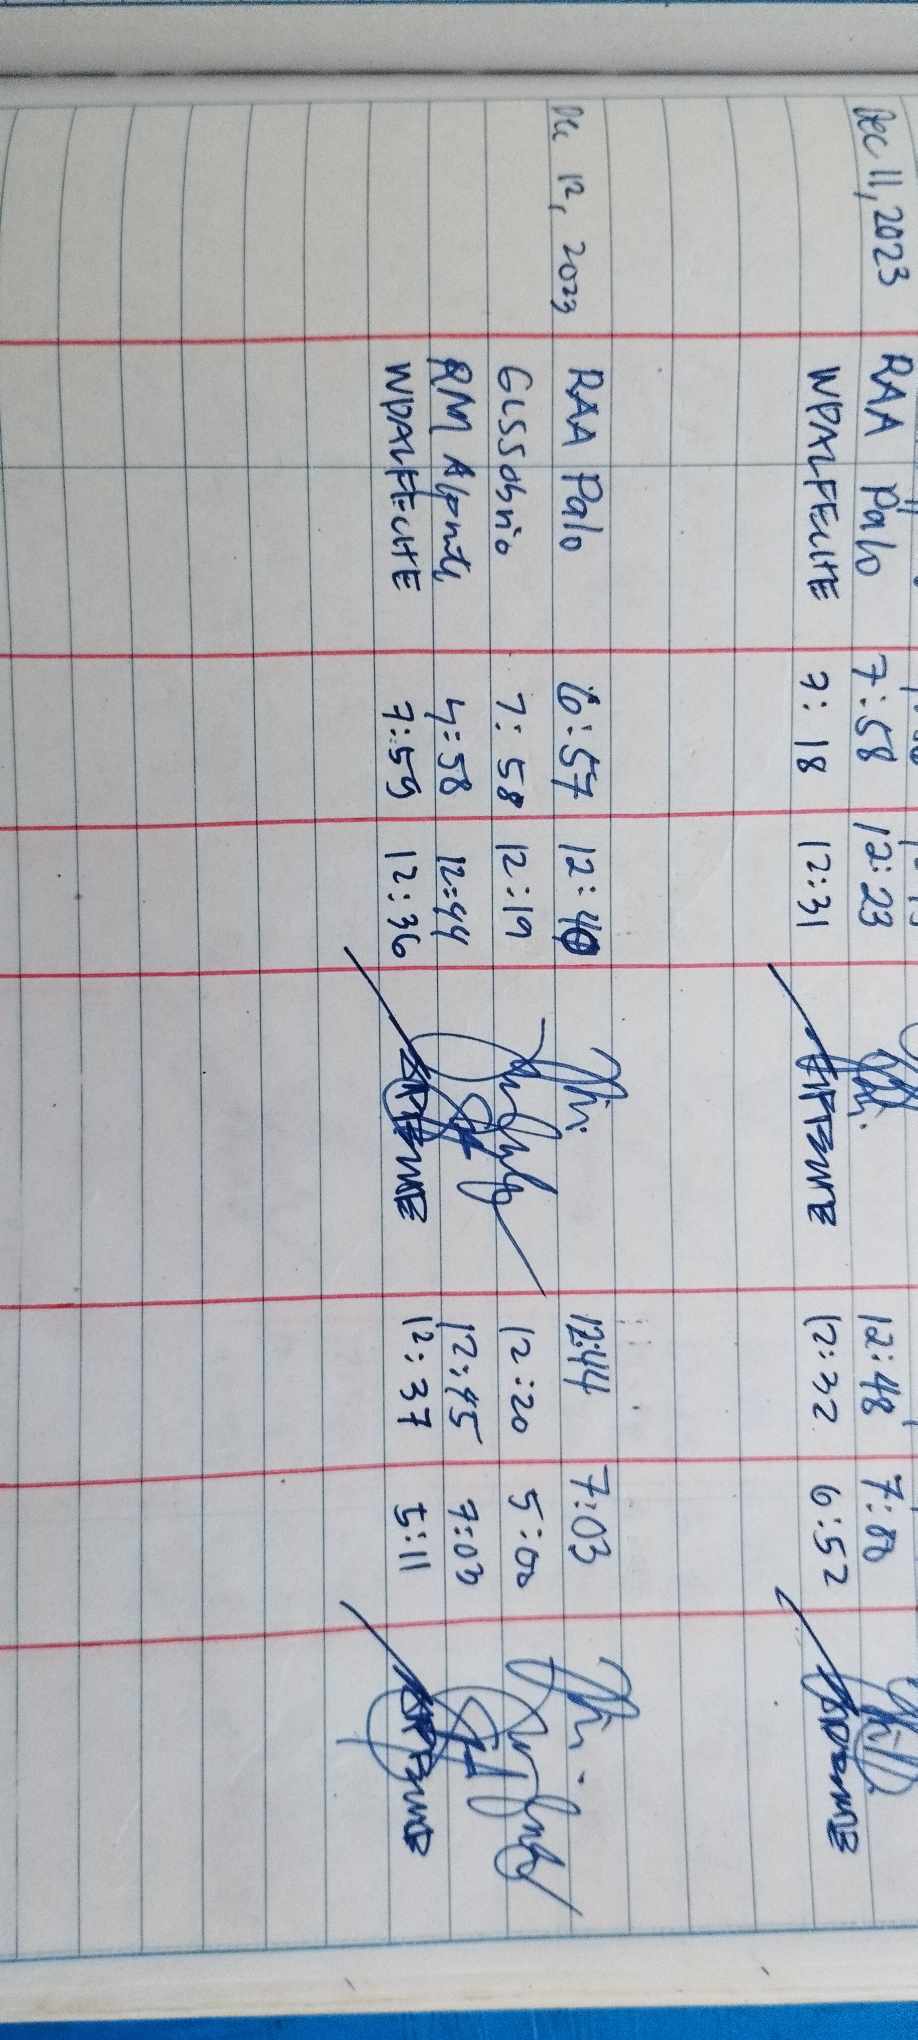 Dec 11, 2023 RAA Palo 7:58 12:23 12:48 7:00
WPALFECHE 7:18 12:31 12:32 6:52
Dec 12, 2023 RAA Palo 6:57 12:40 12:44 7:03
7:58 12:19 12:20 5:00
RM 12:44 12:45 7:03
WPALFECHE 7:59 12:36 12:37 5:11